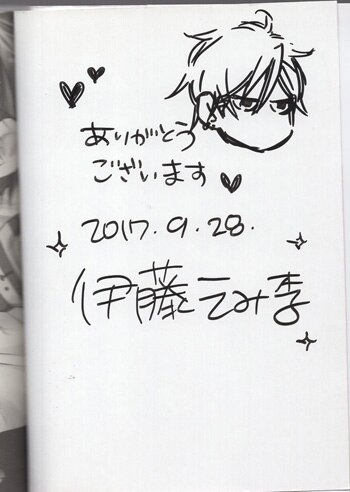 ありがとう
ございます
2017.9.28.
伊藤えみ李